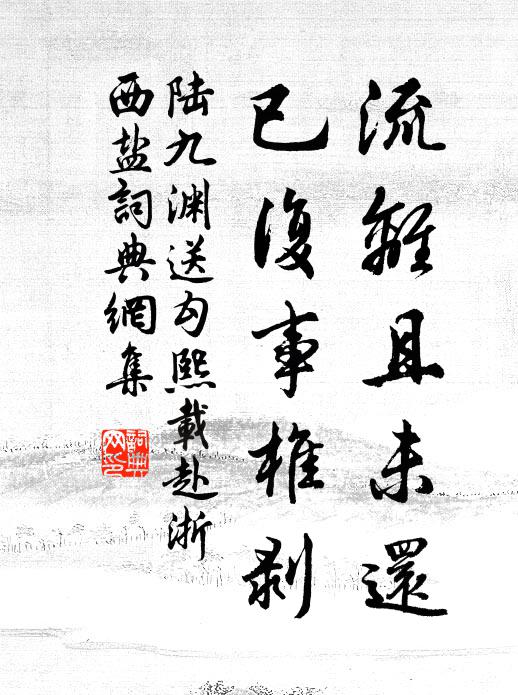 流離且未還
已復事椎剥
陆九渊送勾熙載赴浙
西盐詞典網集
詞典
网印